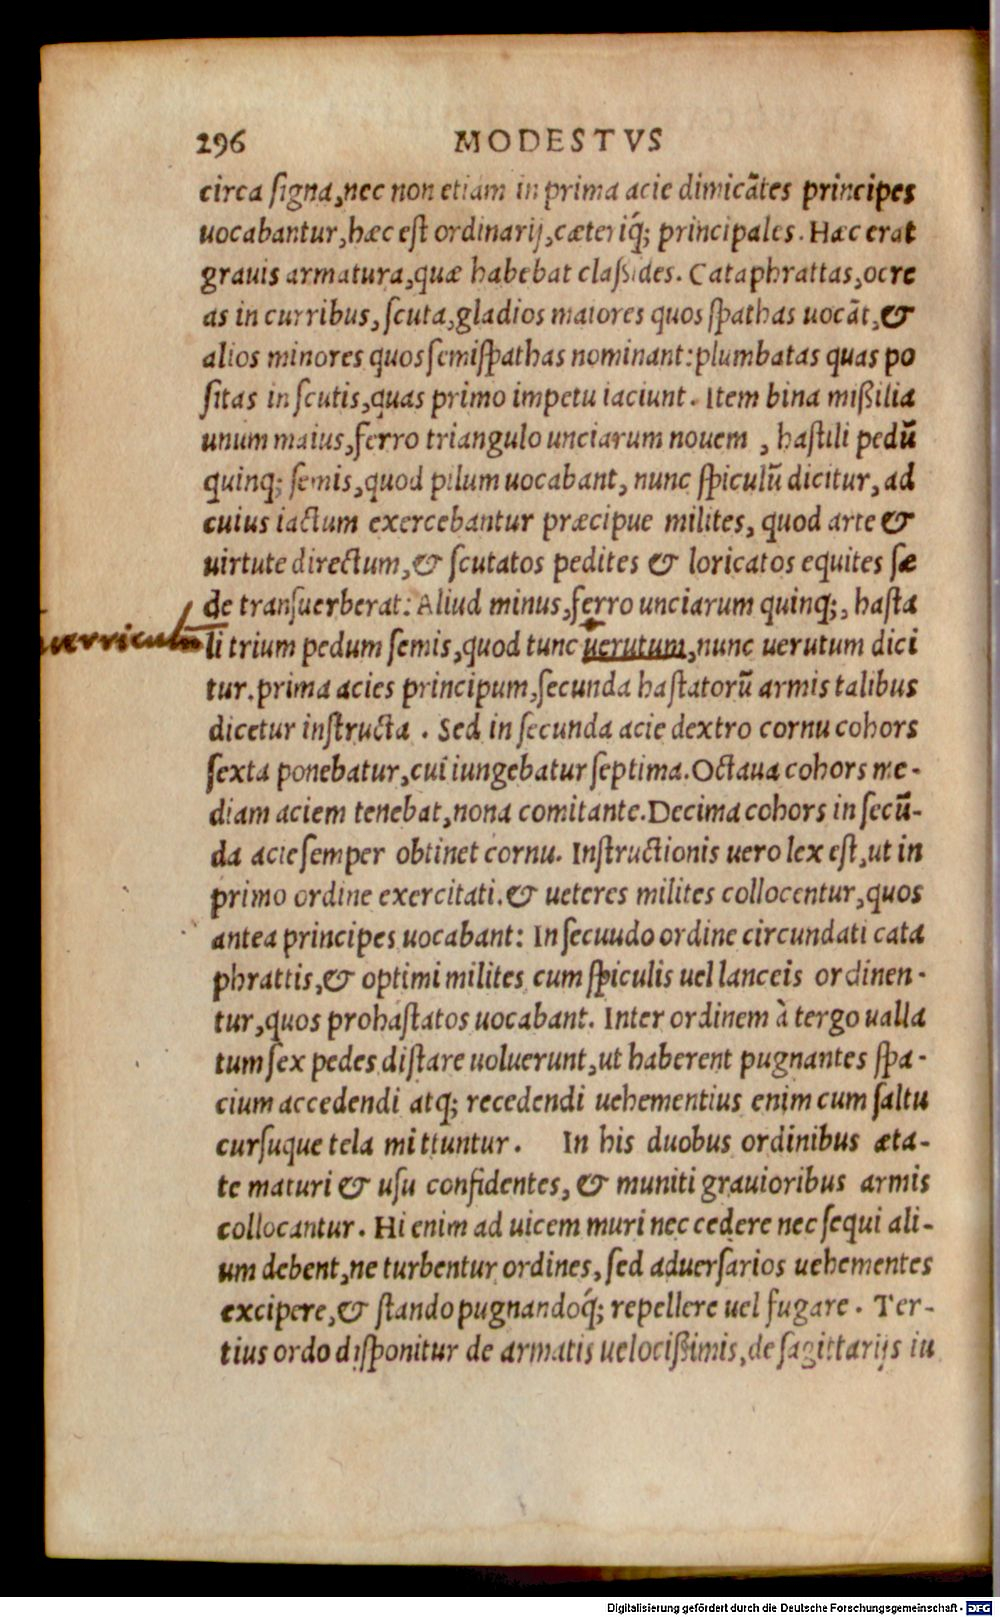 296 MODESTVS
circa ſigna,nec non etiam in prima acie dimicātes principes
uocabantur,hæc eſt ordinarij,cæteriq́; principales. Hæc erat
grauis armatura,quæ habebat claßides. Cataphrattas,ocre
as in curribus, ſcuta,gladios maiores quos ſpathas uocāt,&
alios minores quos ſemiſpathas nominant:plumbatas quas po
ſitas in ſcutis,quas primo impetu iaciunt. Item bina mißilia
unum maius,ferro triangulo unciarum nouem , haſtili pedū
quinq; ſemis,quod pilum uocabant, nunc ſpiculū dicitur, ad
cuius iactum exercebantur præcipue milites, quod arte &
uirtute directum,& ſcutatos pedites & loricatos equites ſæ
de tranſuerberat: Aliud minus,ferro unciarum quinq;, haſta
uerriculū
li trium pedum ſemis,quod tunc uerutum,nunc uerutum dici
tur.prima acies principum,ſecunda haſtatorū armis talibus
dicetur inſtructa . Sed in ſecunda acie dextro cornu cohors
ſexta ponebatur,cui iungebatur ſeptima.Octaua cohors me-
diam aciem tenebat,nona comitante.Decima cohors in ſecū-
da acie ſemper obtinet cornu. Inſtructionis uero lex eſt,ut in
primo ordine exercitati.& ueteres milites collocentur,quos
antea principes uocabant: In ſecuudo ordine circundati cata
phrattis,& optimi milites cum ſpiculis uel lanceis ordinen-
tur,quos prohaſtatos uocabant. Inter ordinem à tergo ualla
tum ſex pedes diſtare uoluerunt,ut haberent pugnantes ſpa-
cium accedendi atq; recedendi uehementius enim cum ſaltu
curſuque tela mittuntur. In his duobus ordinibus æta-
te maturi & uſu confidentes, & muniti grauioribus armis
collocantur. Hi enim ad uicem muri nec cedere nec ſequi ali-
um debent,ne turbentur ordines, ſed aduerſarios uehementes
excipere,& ſtando pugnandoq́; repellere uel fugare. Ter-
tius ordo diſponitur de armatis uelocißimis,de ſagittarijs iu
Digitalisierung gefördert durch die Deutsche Forschungsgemeinschaft - DFG